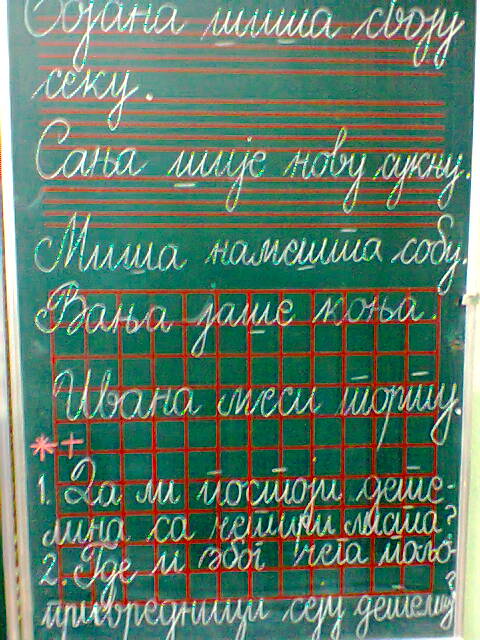 Бојана шиша своју
секу.
Сања шије нову сукњу.
Миша намешта собу.
Вања јаше коња.
Ивана меси торту.
* +
1. Да ли постоји дете-
лина са четири листа?
2. Где и због чега пољо-
привредници сеју детелину?